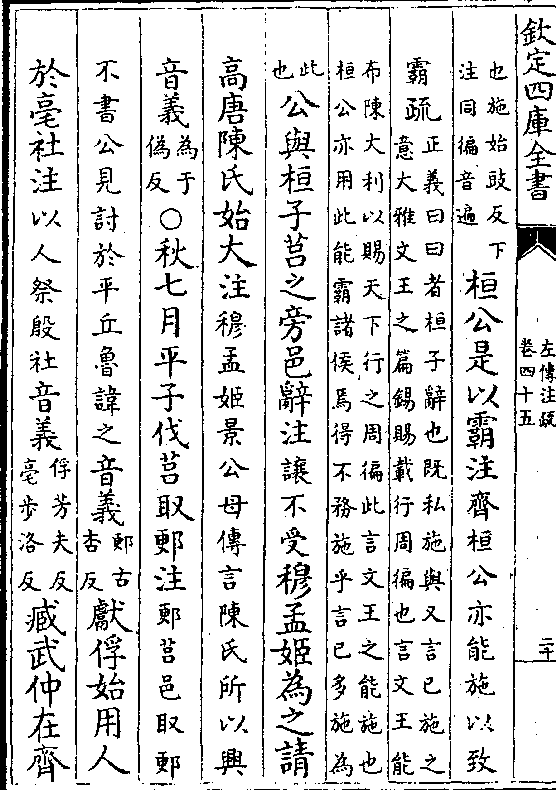 欽定四庫全書
左傳注疏
卷四十五
二十
也施始豉反下
注同徧音遍
桓公是以霸注齊桓公亦能施以致
霸疏
正義曰曰者桓子辭也既私施與又言已施之
意大雅文王之篇錫賜載行周徧也言文王能
布陳大利以賜天下行之周徧此言文王之能施也
桓公亦用此能霸諸侯焉得不務施乎言已多施為
此
也
公與桓子莒之旁邑辭注讓不受穆孟姬為之請
高唐陳氏始大注穆孟姬景公母傳言陳氏所以興
音義
為于
偽反
○秋七月平子伐莒取郠注郠莒邑取郠
不書公見討於平丘魯諱之音義
郠古
杏反
獻俘始用人
於亳社注以人祭殷社音義
俘芳夫反
亳步洛反
臧武仲在齊